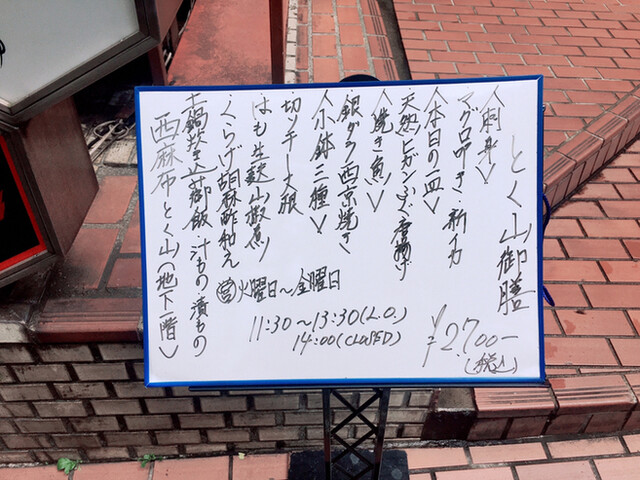 とく山御膳
〈刺身〉
マグロ叩き・新イカ
〈本日の一皿〉
天然ヒガンふぐ唐揚げ
〈焼き魚〉
銀ダラ西京焼き
〈小鉢三種〉
はも生麩山椒煮
切ッチー大根
くらげ胡麻酢和え
土鍋炊き込御飯 汁もの 漬もの
西麻布とく山(地下一階)
営火曜日〜金曜日
11:30〜13:30(L.O.)
14:00(CLOSED)
¥2.700ー
(税込)